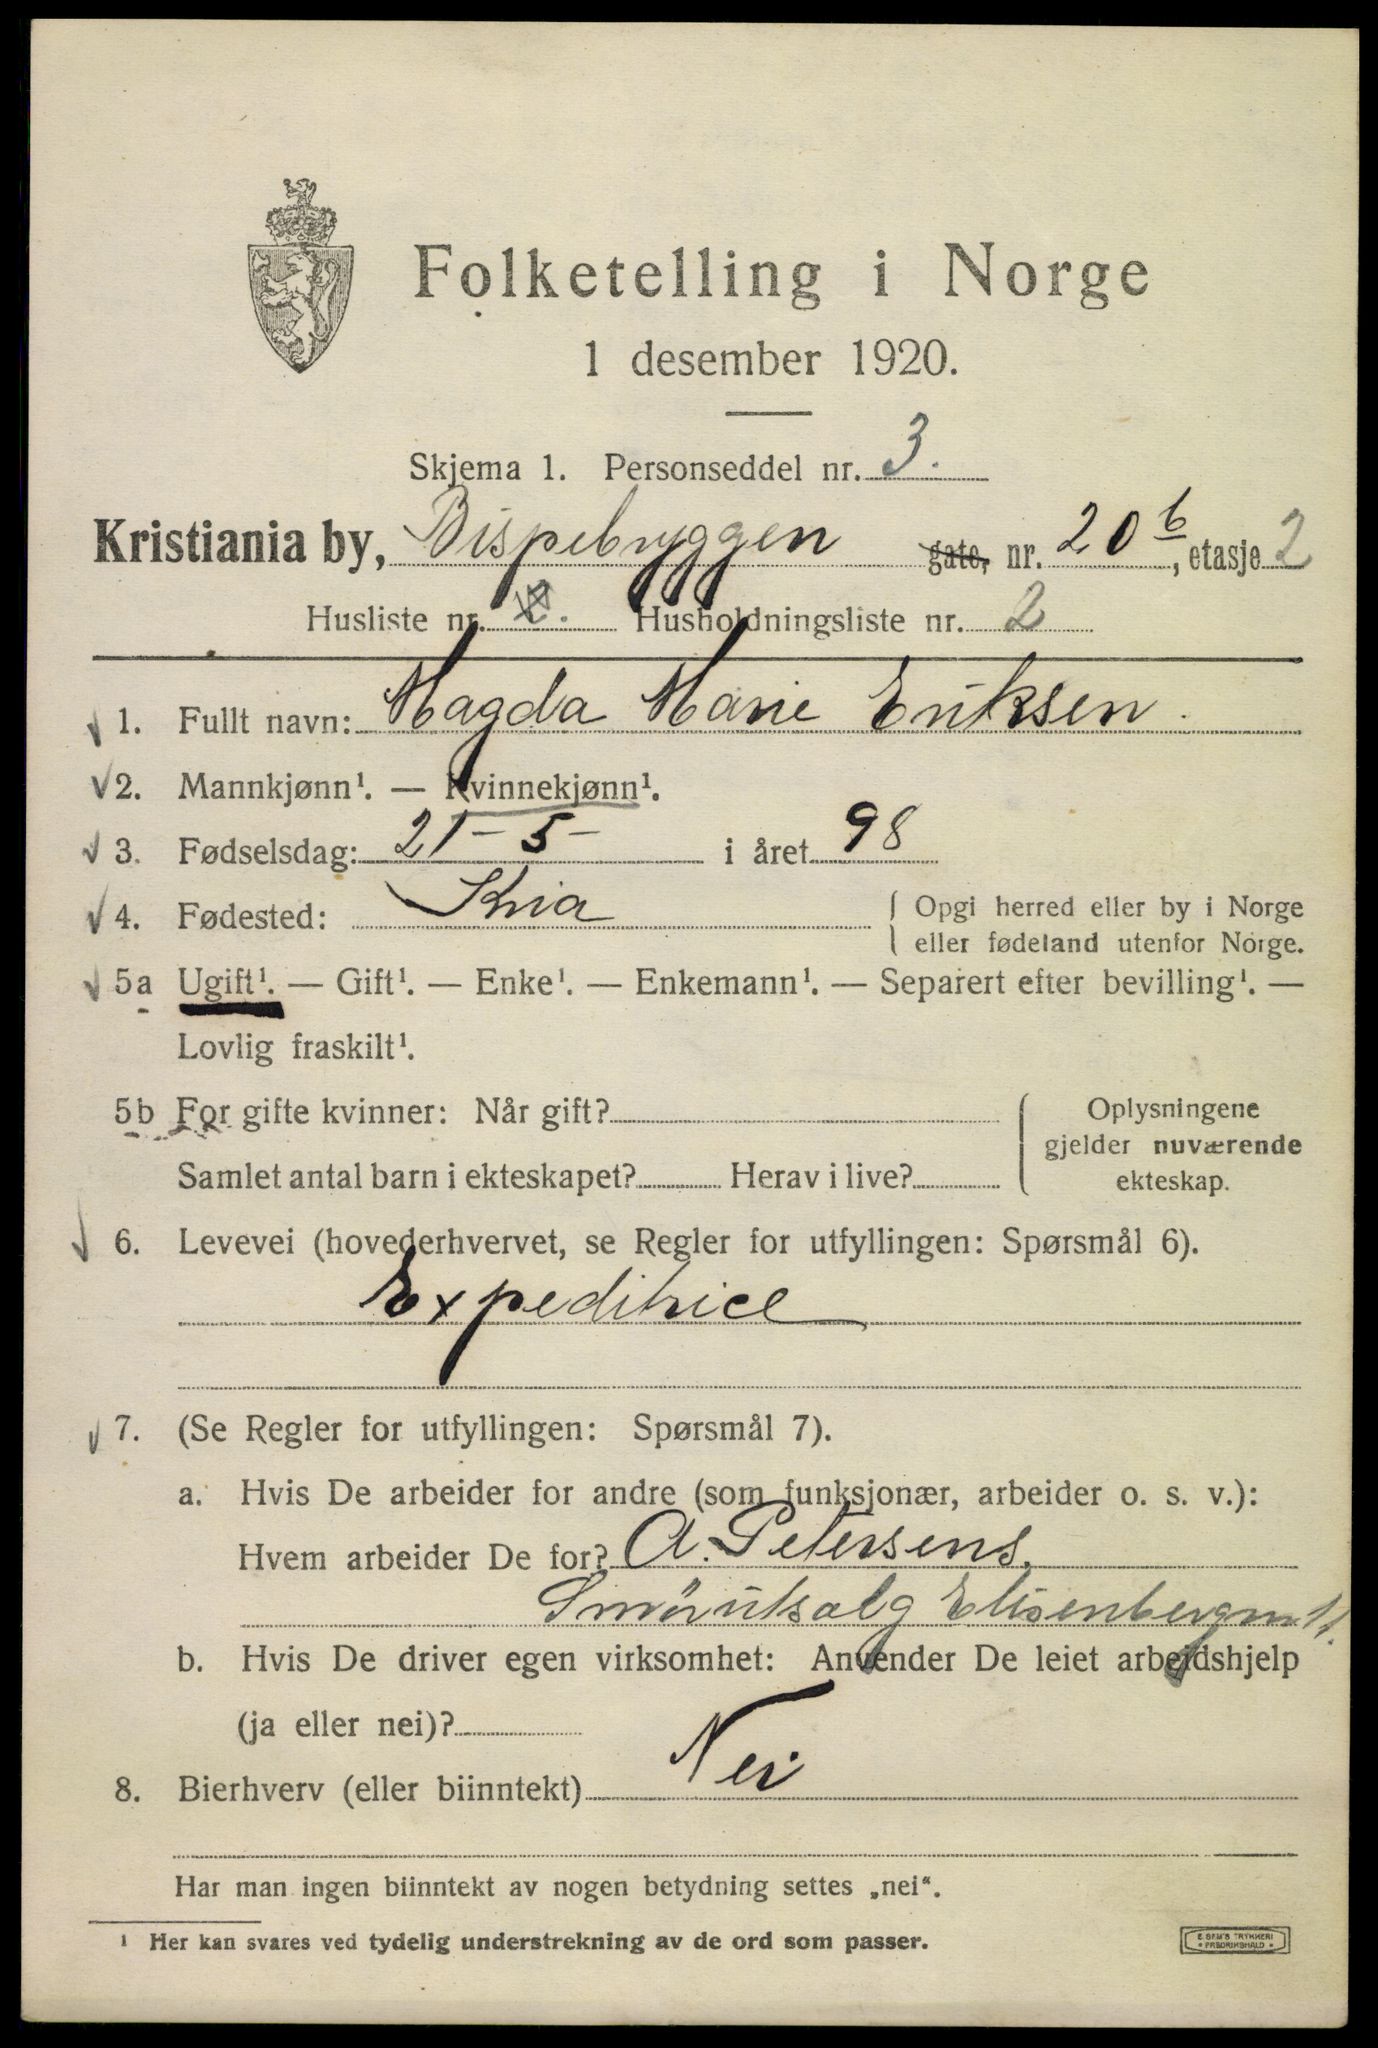 Folketelling i Norge
1 desember 1920.
Skjema 1. Personseddel nr. 3.
Kristiania by, Bispebryggen gate, nr. 20 b, etasje 2
Husliste nr. Husholdningsliste nr. 2
1. Fullt navn: Magda Marie Eriksen.
2. Mannkjønn¹. — Kvinnekjønn¹.
3. Fødselsdag: 21-5- i året 98
4. Fødested: Kria { Opgi herred eller by i Norge
eller fødeland utenfor Norge.
5a Ugift¹. — Gift¹. — Enke¹. — Enkemann¹. — Separert efter bevilling¹. —
Lovlig fraskilt¹.
5b For gifte kvinner: Når gift? Oplysningene
gjelder nuværende
Samlet antal barn i ekteskapet? Herav i live? ekteskap.
6. Levevei (hovederhvervet, se Regler for utfyllingen: Spørsmål 6).
Expeditrice
7. (Se Regler for utfyllingen: Spørsmål 7).
a. Hvis De arbeider for andre (som funksjonær, arbeider o. s. v.):
Hvem arbeider De for? A. Petersens.
Smørutsalg Elisenbergv. 11.
b. Hvis De driver egen virksomhet: Anvender De leiet arbeidshjelp
(ja eller nei)?
8. Bierhverv (eller biinntekt) Nei
Har man ingen biinntekt av nogen betydning settes „nei“.
¹ Her kan svares ved tydelig understrekning av de ord som passer.
E. SEM'S TRYKKERI
• FREDRIKSHALD •